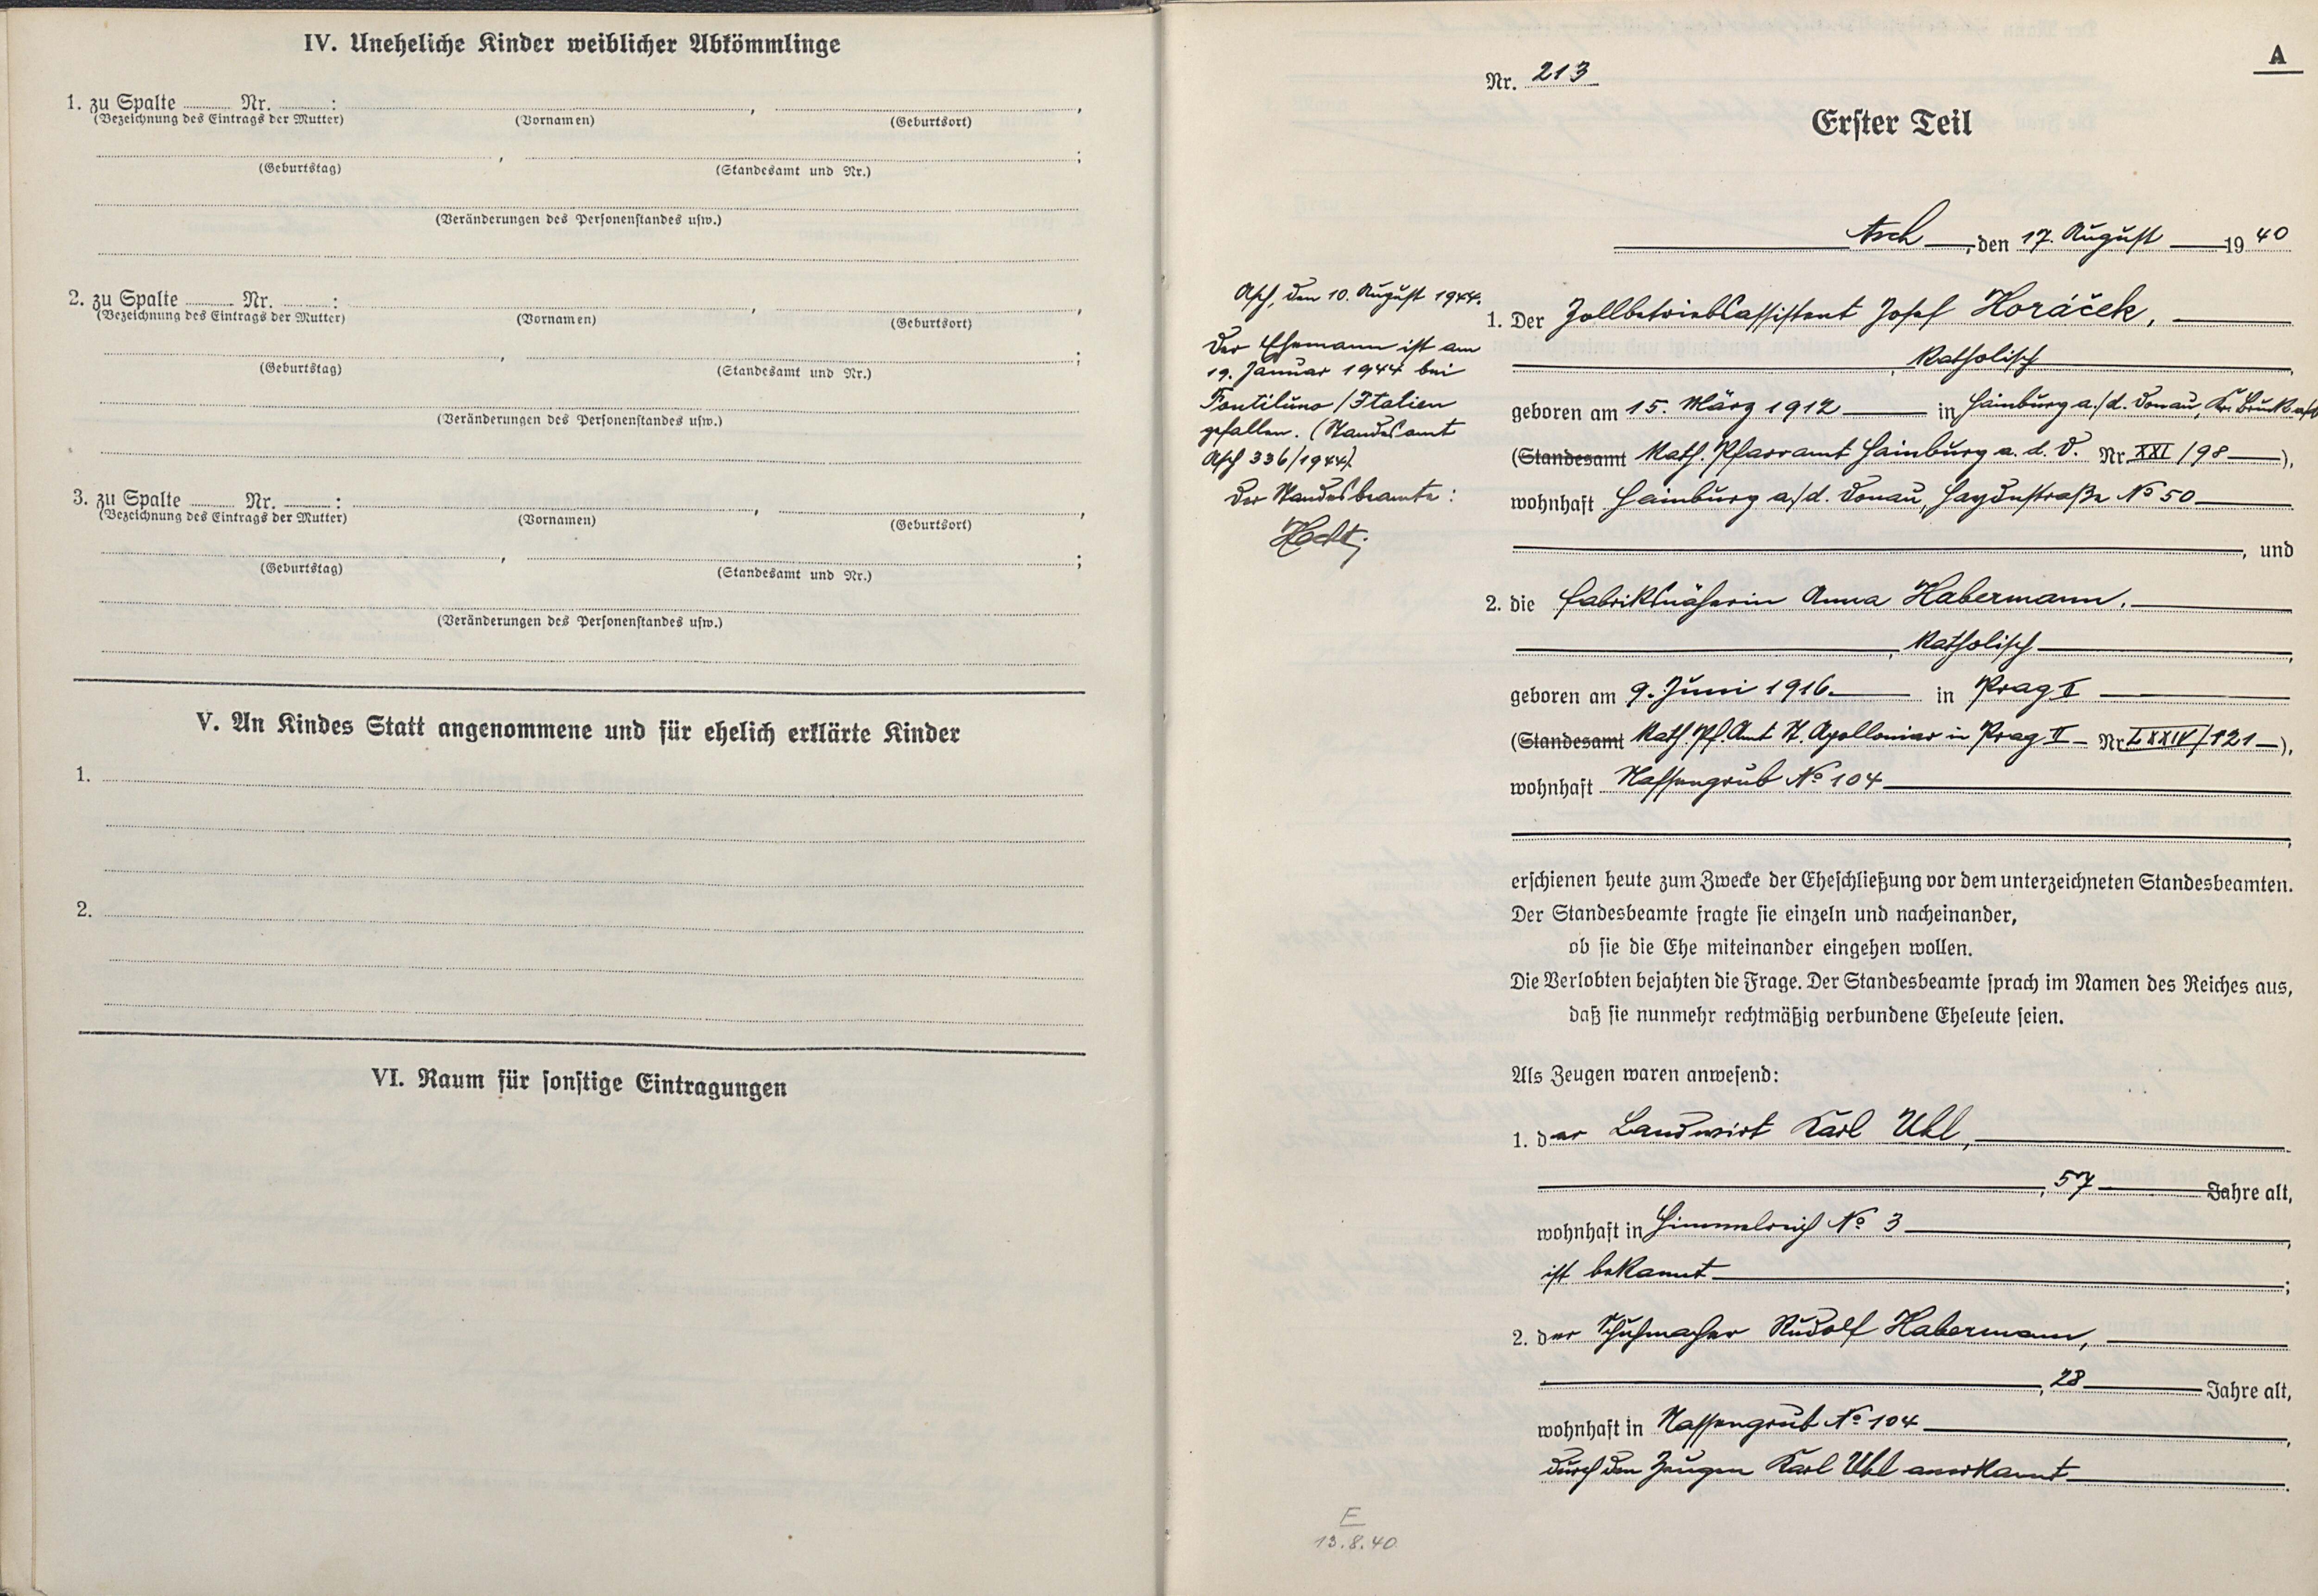 IV. Uneheliche Kinder weiblicher Abkömmlinge
1. zu Spalte ........ Nr. ........ : ........ , ........ ,
(Bezeichnung des Eintrags der Mutter) (Vornamen) (Geburtsort)
........ , ........ ;
(Geburtstag) (Standesamt und Nr.)
(Veränderungen des Personenstandes usw.)
2. zu Spalte ........ Nr. ........ : ........ , ........ ,
(Bezeichnung des Eintrags der Mutter) (Vornamen) (Geburtsort)
........ , ........ ;
(Geburtstag) (Standesamt und Nr.)
(Veränderungen des Personenstandes usw.)
3. zu Spalte ........ Nr. ........ : ........ , ........ ,
(Bezeichnung des Eintrags der Mutter) (Vornamen) (Geburtsort)
........ , ........ ;
(Geburtstag) (Standesamt und Nr.)
(Veränderungen des Personenstandes usw.)
V. An Kindes Statt angenommene und für ehelich erklärte Kinder
1.
2.
VI. Raum für sonstige Eintragungen
A
Nr. 213
Erster Teil
Asch, den 17. August 1940
Asch, den 10. August 1944.
Der Ehemann ist am
19. Januar 1944 bei
Fontiluno / Italien
gefallen. (Standesamt
Asch 336/1944).
Der Standesbeamte:
1. Der Zollbetriebsassistent Josef Horáček,
, katholisch,
geboren am 15. März 1912 in Hainburg a./d. Donau, Kr. Bruck a/d
(Standesamt Kath. Pfarramt Hainburg a. d. D. Nr. XXI / 98),
wohnhaft Hainburg a./d. Donau, Haydnstraße No 50
, und
2. die Fabriksnäherin Anna Habermann,
, katholisch,
geboren am 9. Juni 1916 in Prag II
(Standesamt Kath. Pf. Amt St. Apolloniar in Prag II Nr. LXXIV / 121),
wohnhaft Nassengrub No 104
,
erschienen heute zum Zwecke der Eheschließung vor dem unterzeichneten Standesbeamten.
Der Standesbeamte fragte sie einzeln und nacheinander,
ob sie die Ehe miteinander eingehen wollen.
Die Verlobten bejahten die Frage. Der Standesbeamte sprach im Namen des Reiches aus,
daß sie nunmehr rechtmäßig verbundene Eheleute seien.
Als Zeugen waren anwesend:
1. der Landwirt Karl Uhl,
, 57 Jahre alt,
wohnhaft in Himmelreich No 3,
ist bekannt;
2. der Schuhmacher Rudolf Habermann,
, 28 Jahre alt,
wohnhaft in Nassengrub No 104,
durch den Zeugen Karl Uhl anerkannt.
E
13.8.40